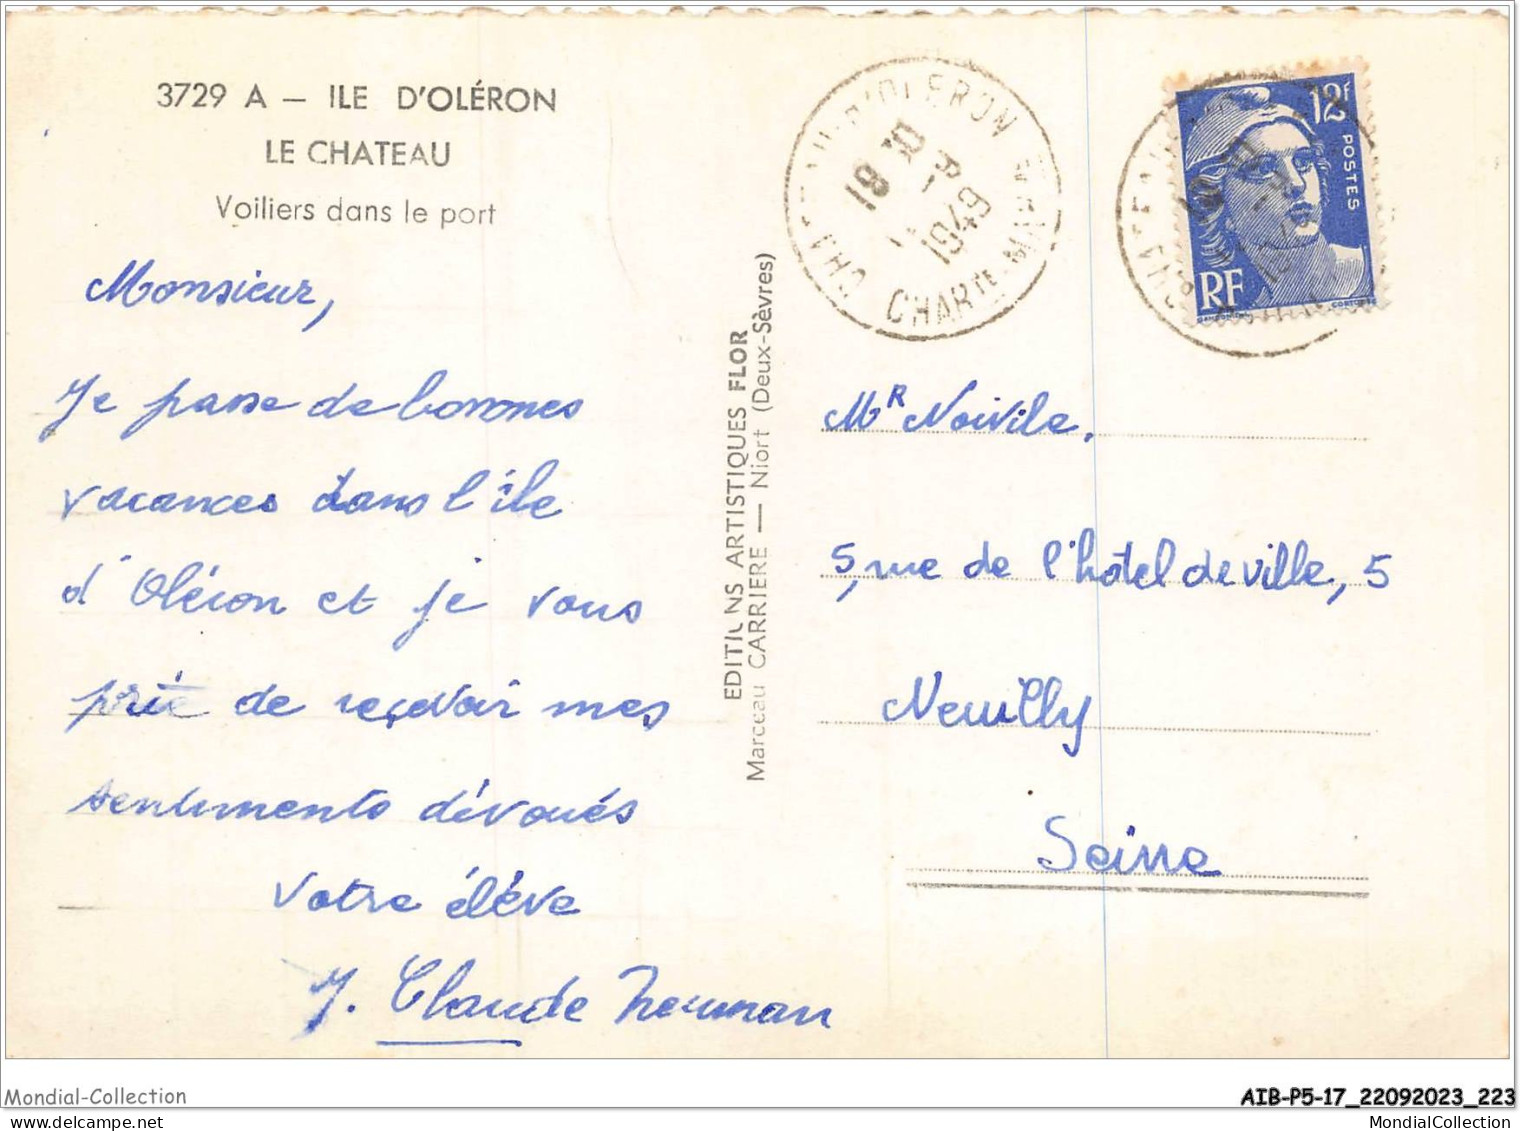 3729 A — ILE D'OLÉRON
LE CHATEAU
Voiliers dans le port
Monsieur,
Je passe de bonnes
vacances dans l'île
d'Oléron et je vous
prie de reçevoir mes
sentiments dévoués
Votre élève
J. Claude Neuman
EDITIONS ARTISTIQUES FLOR
Marceau CARRIERE — Niort (Deux-Sèvres)
CHATEAU-D'OLERON
1949
CHARTE-MARITIME
12f
POSTES
RF
Mr Noivile,
5, rue de l'hôtel de ville, 5
Neuilly
Seine
Mondial-Collection
AIB-P5-17_22092023_223
mundial111
MondialCollection